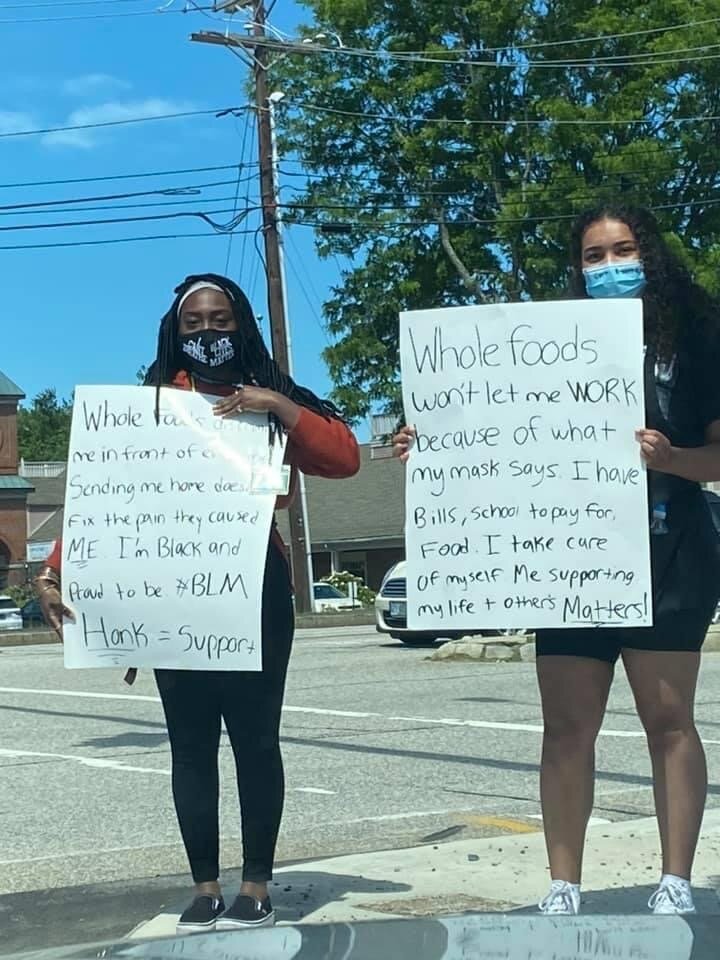 BLACK
LIVES
MATTER
Whole
me in front of
Sending me home
Fix the pain they caused
ME. I'm Black and
Proud to be #BLM
Honk = Support
Whole foods
won't let me WORK
because of what
my mask says. I have
Bills, school to pay for,
Food. I take care
of myself Me supporting
my life + other's Matters!